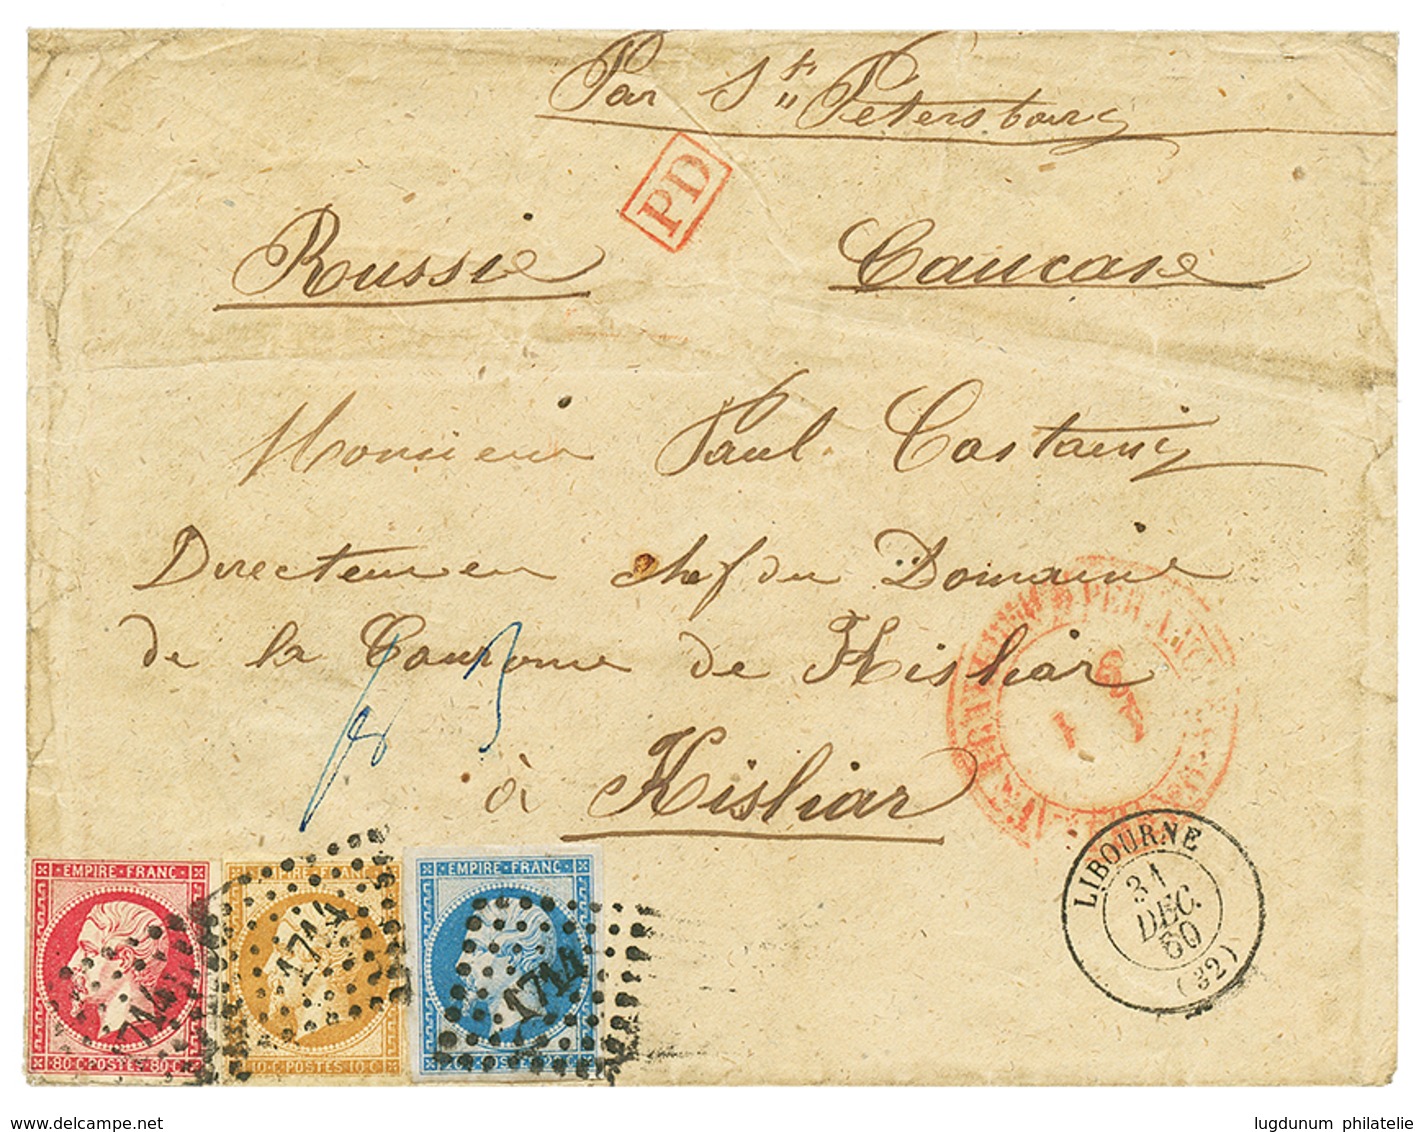 Par St Petersbourg
PD
Russie Caucase
Monsieur Paul Castaing
Directeur en chef du Domaine
de la Couronne de Kisliar
à Kisliar
LIBOURNE
31
DEC.
60
(32)
EMPIRE FRANC
80 C POSTES 80 C
1714
EMPIRE FRANC
10 C POSTES 10 C
1714
EMPIRE FRANC
1714
lugdunum philatelie
delcampe.net